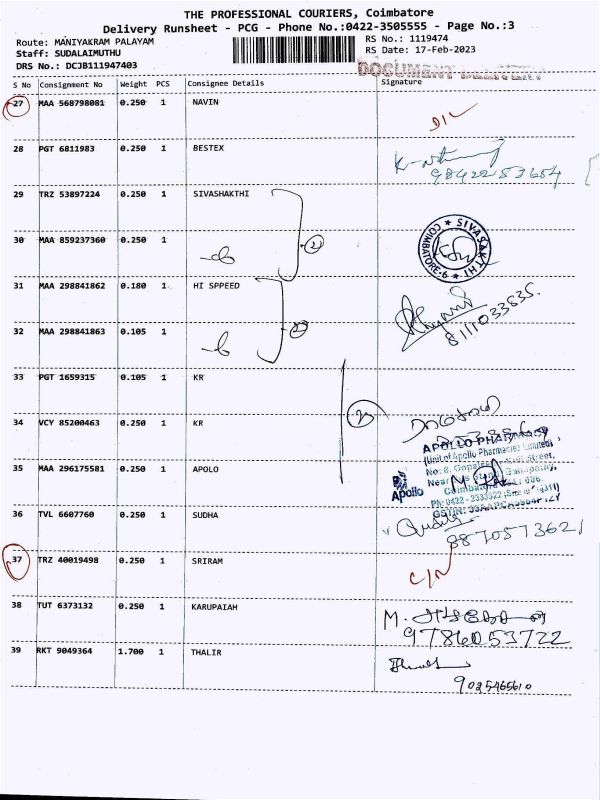 THE PROFESSIONAL COURIERS, Coimbatore
Delivery Runsheet - PCG - Phone No.:0422-3505555 - Page No.:3
Route: MANIYAKRAM PALAYAM
Staff: SUDALAIMUTHU
DRS No.: DCJB111947403
RS No.: 1119474
RS Date: 17-Feb-2023
DOCUMENT DELIVERY
S No Consignment No Weight PCS Consignee Details Signature
27 MAA 568798081 0.250 1 NAVIN D/L
28 PGT 6811983 0.250 1 BESTEX
9842253654
29 TRZ 53897224 0.250 1 SIVASHAKTHI
SIVASAKTHI COIMBATORE-6
30 MAA 859237360 0.250 1
31 MAA 298841862 0.180 1 HI SPPEED
8111033535
32 MAA 298841863 0.105 1
33 PGT 1659315 0.105 1 KR
34 VCY 85200463 0.250 1 KR
APOLLO PHARMACY
(Unit of Apollo Pharmacies Limited)
35 MAA 296175581 0.250 1 APOLO
Apollo
36 TVL 6607760 0.250 1 SUDHA
8870573621
37 TRZ 40019498 0.250 1 SRIRAM C/N
38 TUT 6373132 0.250 1 KARUPAIAH
9786053722
39 RKT 9049364 1.700 1 THALIR
9025465610